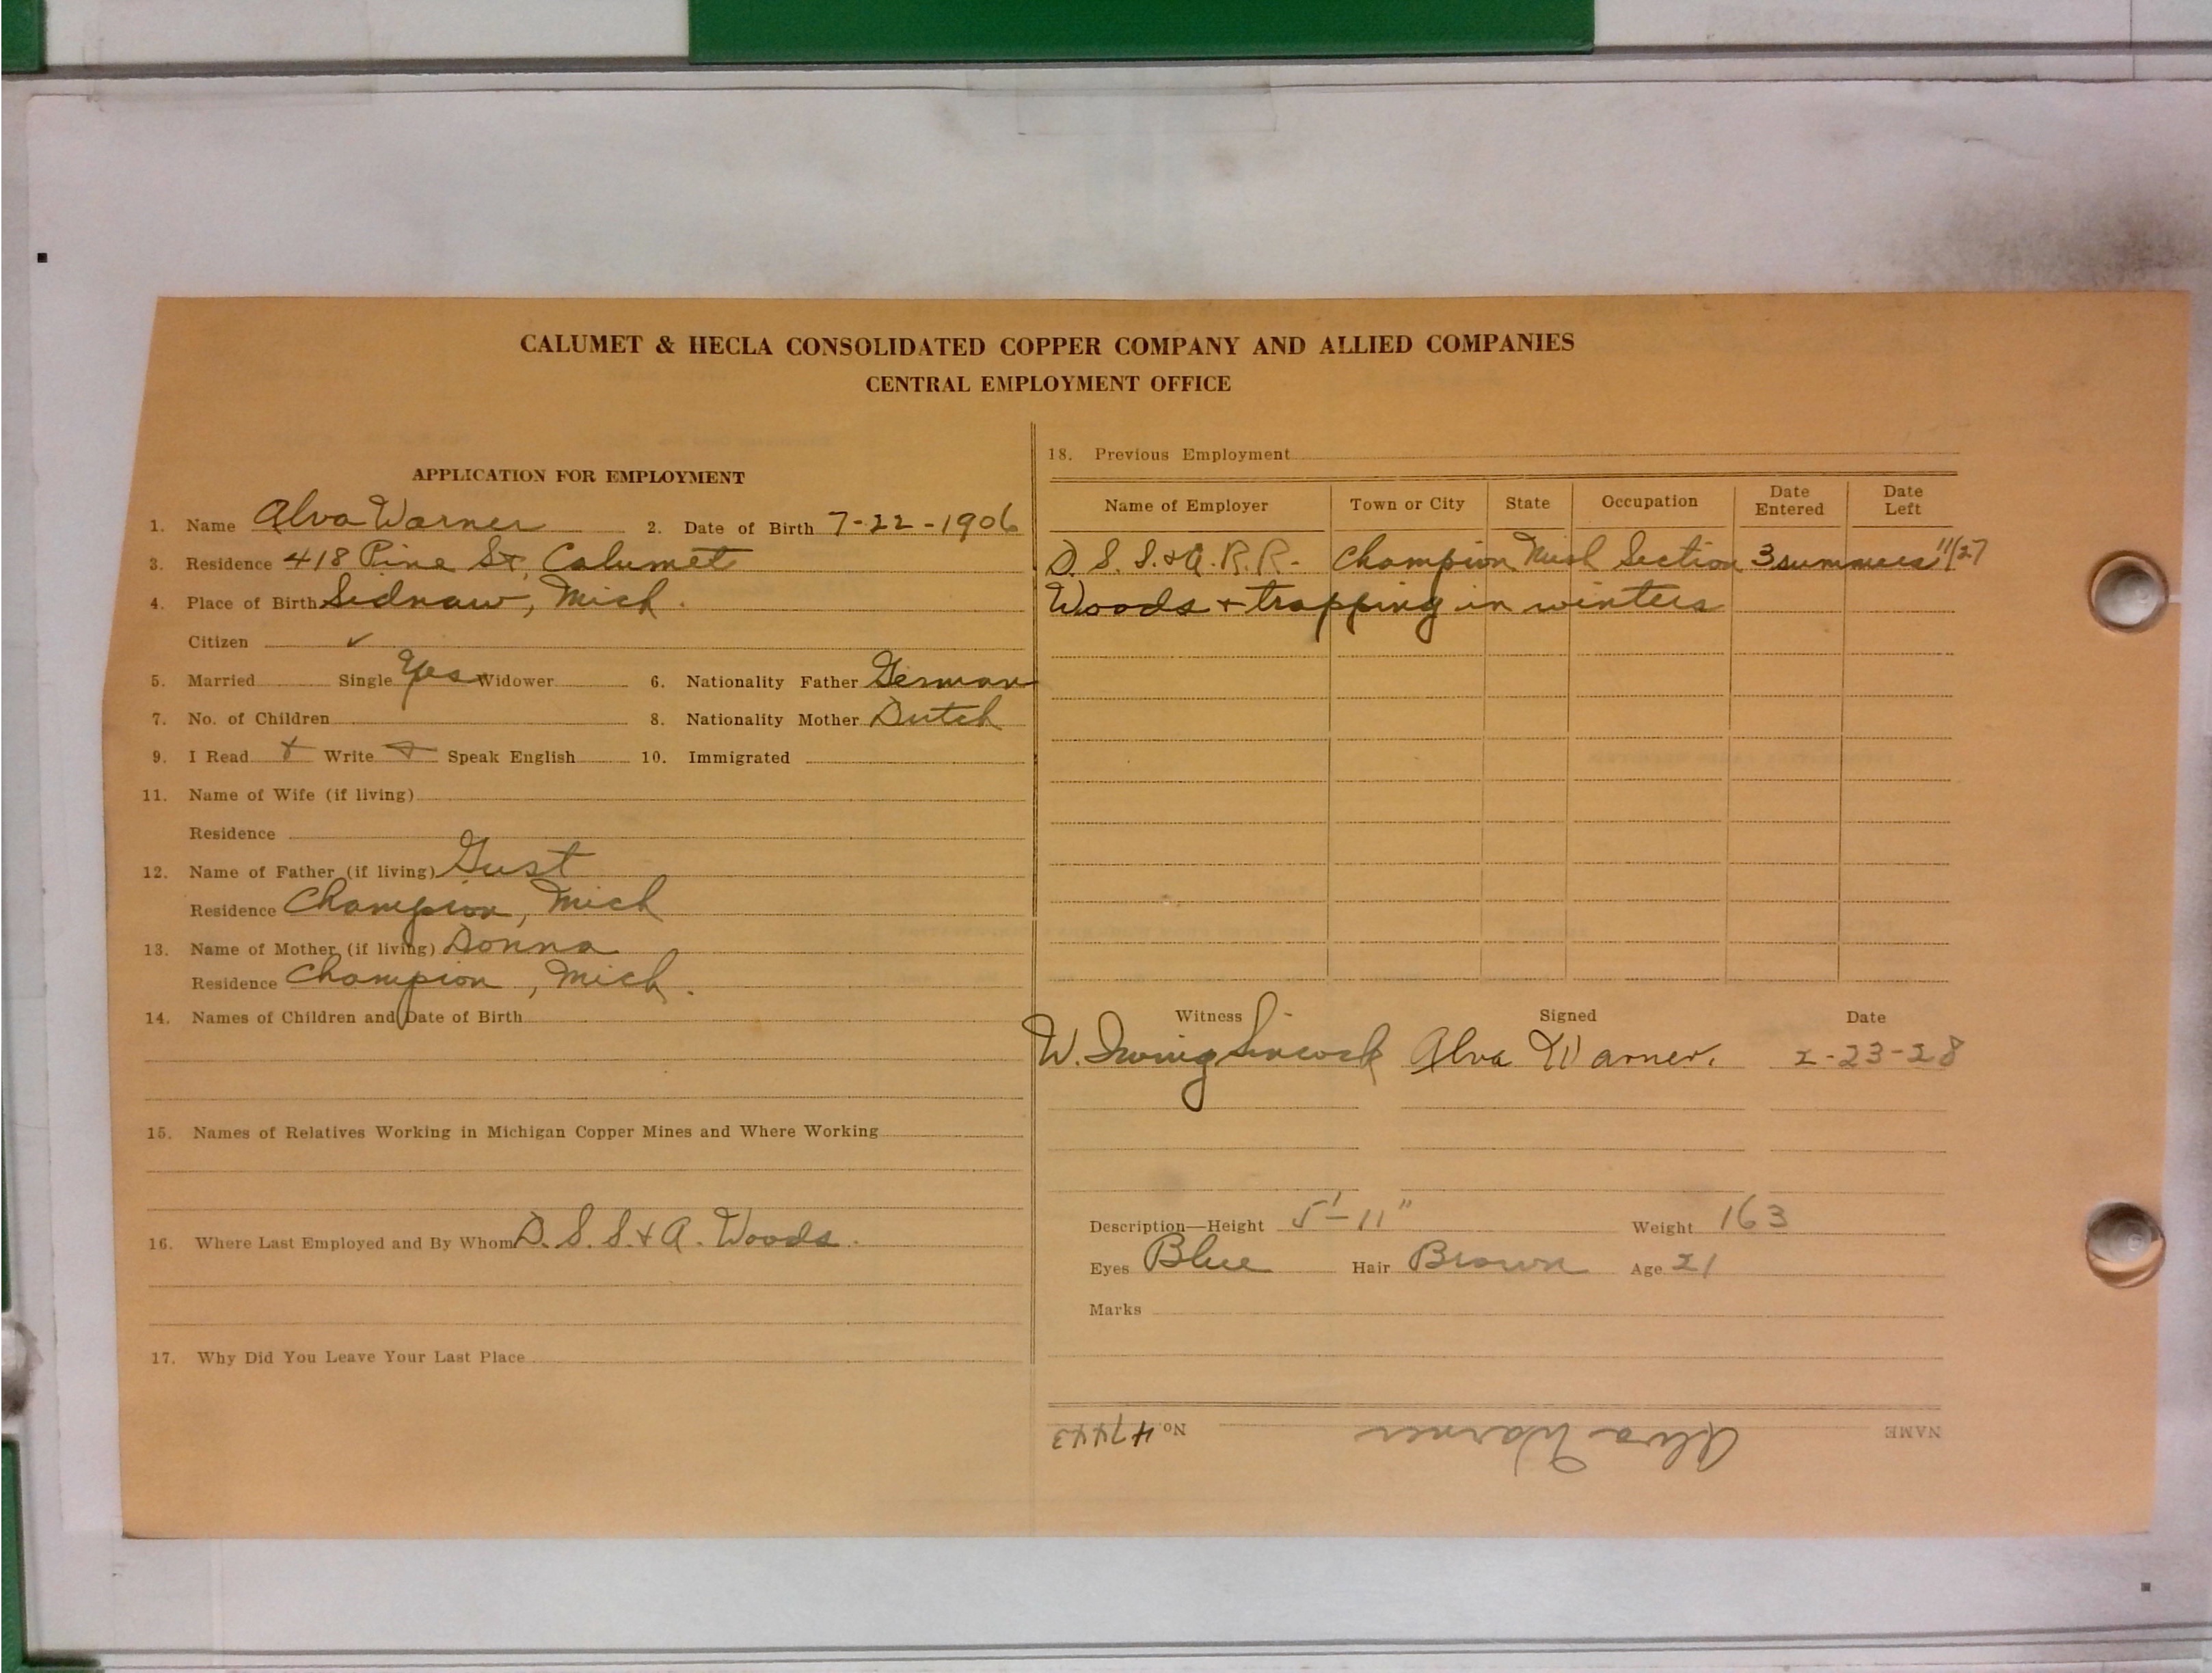 CALUMET & HECLA CONSOLIDATED COPPER COMPANY AND ALLIED COMPANIES
CENTRAL EMPLOYMENT OFFICE
APPLICATION FOR EMPLOYMENT
1. Name Alva Warner 2. Date of Birth 7-22-1906
3. Residence 418 Pine St, Calumet
4. Place of Birth Sidnaw, Mich.
Citizen ✓
5. Married Single Yes Widower 6. Nationality Father German
7. No. of Children 8. Nationality Mother Dutch
9. I Read + Write + Speak English 10. Immigrated
11. Name of Wife (if living)
Residence
12. Name of Father (if living) Gust
Residence Champion, Mich
13. Name of Mother (if living) Donna
Residence Champion, Mich.
14. Names of Children and Date of Birth
15. Names of Relatives Working in Michigan Copper Mines and Where Working
16. Where Last Employed and By Whom D. S. S. & A. Woods.
17. Why Did You Leave Your Last Place
18. Previous Employment
Name of Employer Town or City State Occupation Date Entered Date Left
D. S. S. & A. R. R. Champion Mich Section 3 summers 11/27
Woods + trapping in winters
Witness Signed Date
W. Irving Alva Warner. 2-23-28
Description—Height 5'-11" Weight 163
Eyes Blue Hair Brown Age 21
Marks
NAME Alva Warner No. 47443